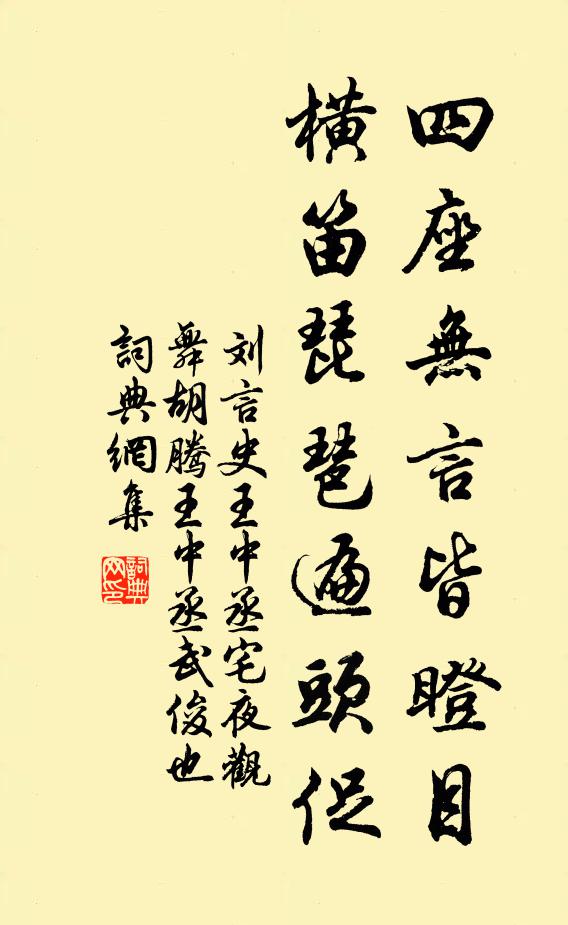 四座無言皆瞪目
橫笛琵琶遍頭促
刘言史王中丞宅夜觀
舞胡腾王中丞武俊也
詞典網集
詞典
网印